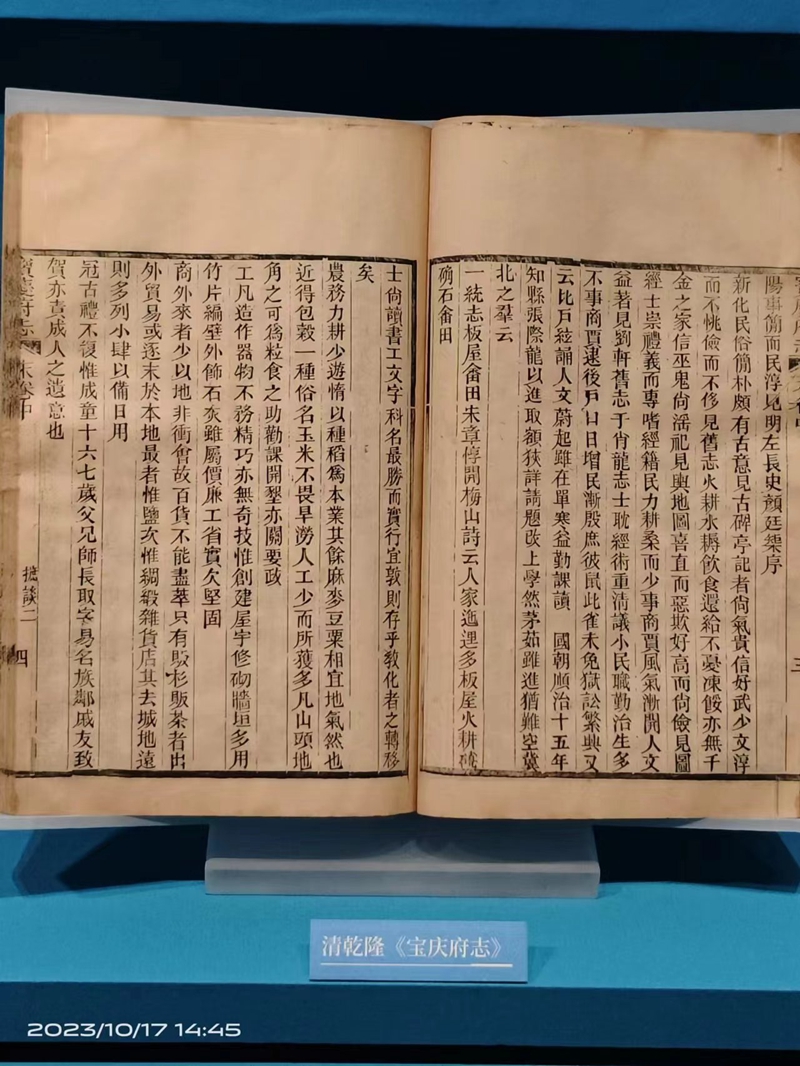 陽事簡而民淳見明左長史顏廷榘序
新化民俗簡朴頗有古意見古碑亭記者尙氣貴信好武少文淳
而不恌儉而不侈見舊志火耕水耨飮食還給不憂凍餒亦無千
金之家信巫鬼尙滛祀見輿地圖喜直而惡欺好高而尙儉見圖
經士崇禮義而專嗜經籍民力耕桑而少事商賈風氣漸開人文
益著見劉軒舊志于肖龍志士耽經術重清議小民職勤治生多
不事商賈逮後戸口日增民漸殷庶彼鼠此雀未免獄訟繁興又
云比戸絃誦人文蔚起雖在單寒益勤課讀 國朝順治十五年
知縣張際龍以進取額狹詳請題改上學然茅茹雖進猶難空冀
北之羣云
一統志板屋畲田朱章惇開梅山詩云人家迤逦多板屋火耕磽
确石畲田
士尙讀書工文字科名最勝而實行宜敦則存乎敎化者之轉移
矣
農務力耕少遊惰以種稻爲本業其餘麻麥豆粟相宜地氣然也
近得包穀一種俗名玉米不畏旱澇人工少而所獲多凡山頭地
角之可爲粒食之助勸課開墾亦關要政
工凡造作器物不務精巧亦無奇技惟創建屋宇修砌牆垣多用
竹片編壁外飾石灰雖屬價廉工省實欠堅固
商外來者少以地非衝會故百貨不能盡萃只有販杉販茶者出
外貿易或逐末於本地最者惟鹽次惟綢緞雜貨店其去城地遠
則多列小肆以備日用
冠古禮不復惟成童十六七歲父兄師長取字易名族鄰戚友致
賀亦責成人之遺意也
寶慶府志
末卷中
摭談二
四
三
清乾隆《宝庆府志》
2023/10/17 14:45